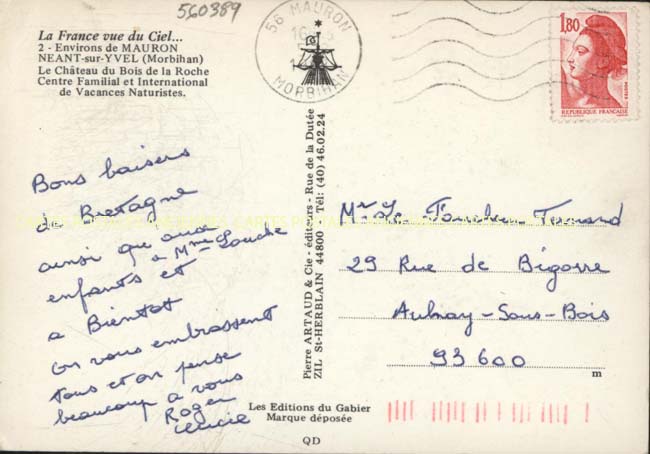 560389
La France vue du Ciel...
2 - Environs de MAURON
NEANT-sur-YVEL (Morbihan)
Le Château du Bois de la Roche
Centre Familial et International
de Vacances Naturistes.
56 MAURON
MORBIHAN
1,80
REPUBLIQUE FRANÇAISE
Bons baisers
de Bretagne
ainsi qu aux
a Mme Louche
enfants et
a Bientot
on vous embrassent
tous et on pense
beaucoup a vous
Roger
Lucie
Pierre ARTAUD & Cie - éditeurs - Rue de la Dutée
ZIL St-HERBLAIN 44800 Tél: (40) 46.02.24
Mr Le Fernand
29 Rue de Bigorre
Aulnay-Sous-Bois
93600
m
Les Editions du Gabier
Marque déposée
QD